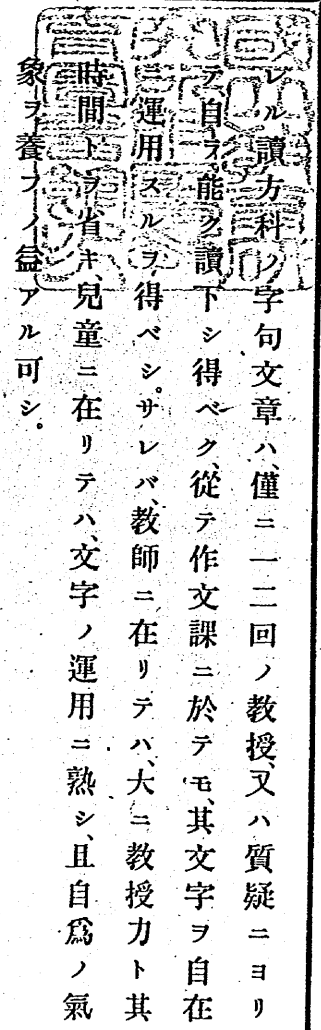 レル讀方科ノ字句文章ハ、僅ニ一二回ノ教授、又ハ質疑ニヨリ
テ、自ラ能ク讀下シ得ベク、從テ作文課ニ於テモ、其文字ヲ自在
ニ運用スルヲ得ベシ。サレバ、教師ニ在リテハ、大ニ教授力ト其
時間トヲ省キ、兒童ニ在リテハ、文字ノ運用ニ熟シ、且自爲ノ氣
象ヲ養フノ益アル可シ。